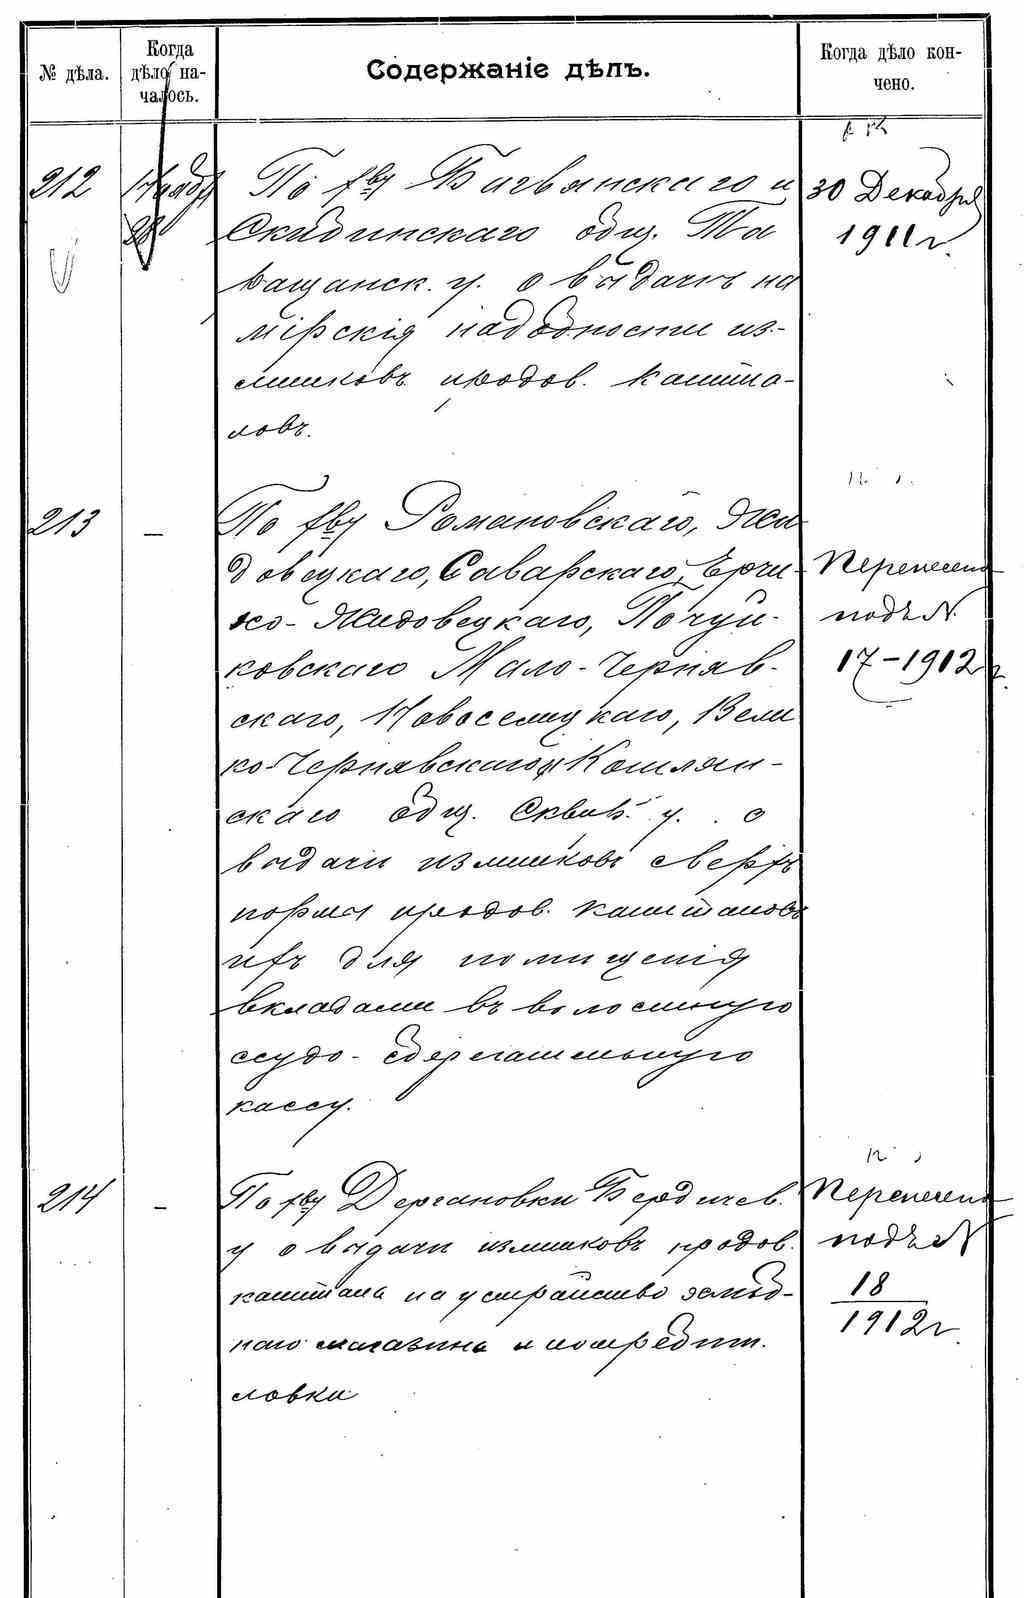 № дѣла.
Когда
дѣло на-
чалось.
Содержаніе дѣлъ.
Когда дѣло кон-
чено.
212
28
По х-ву и
Скидинскаго общ. Та
ращанск. у. о выдачѣ на
мірскія надобности из-
лишковъ продов. капита-
ловъ.
30 Декабря
1911 г.
213
—
По х-ву Романовскаго, Жи
довецкаго, Саварскаго, Ерчи
ко-Жидовецкаго, Почуй-
ковскаго Мало-Черняв-
скаго, Новоселицкаго, Вели
ко-Чернявскаго и Кошлян-
скаго общ. Сквир. у. о
выдачи излишковъ сверхъ
нормы продов. капиталовъ
ихъ для помѣщенія
вкладами въ волостную
ссудо-сберегательную
кассу.
Перенесено
подъ №
17-1912 г.
214
—
По х-ву Дергановки Бердичев.
у о выдачи излишковъ продов.
капитала на устройство хлѣб-
наго магазина и потребит.
лавки
Перенесено
подъ №
18
1912 г